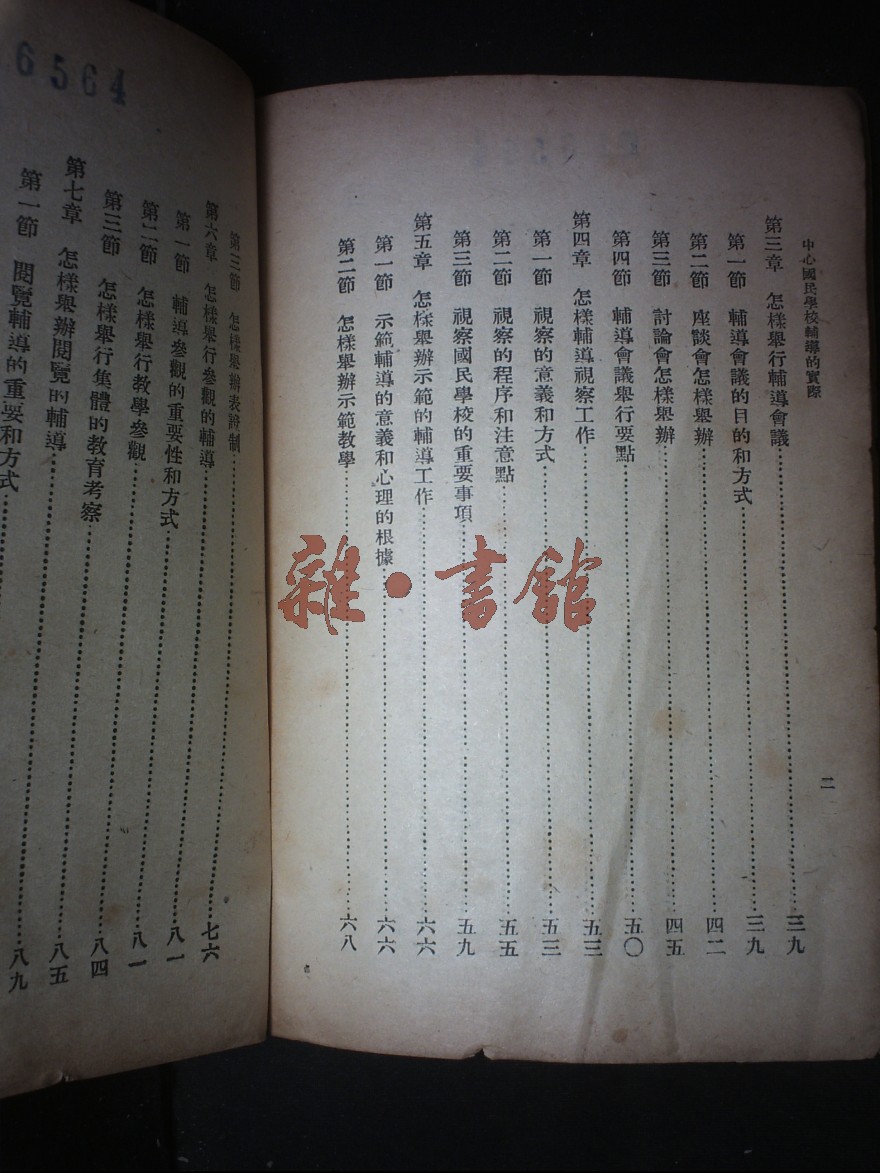 中心國民學校輔導的實際
二
第三章 怎樣舉行輔導會議……三九
第一節 輔導會議的目的和方式……三九
第二節 座談會怎樣舉辦……四二
第三節 討論會怎樣舉辦……四五
第四節 輔導會議舉行要點……五〇
第四章 怎樣輔導視察工作……五三
第一節 視察的意義和方式……五三
第二節 視察的程序和注意點……五五
第三節 視察國民學校的重要事項……五九
第五章 怎樣舉辦示範的輔導工作……六六
第一節 示範輔導的意義和心理的根據……六六
第二節 怎樣舉辦示範教學……六八
雜·書館
6564
第三節 怎樣舉辦表證制……七六
第六章 怎樣舉行參觀的輔導……八一
第一節 輔導參觀的重要性和方式……八一
第二節 怎樣舉行教學參觀……八四
第三節 怎樣舉行集體的教育考察……八五
第七章 怎樣舉辦閱覽的輔導……八九
第一節 閱覽輔導的重要和方式……